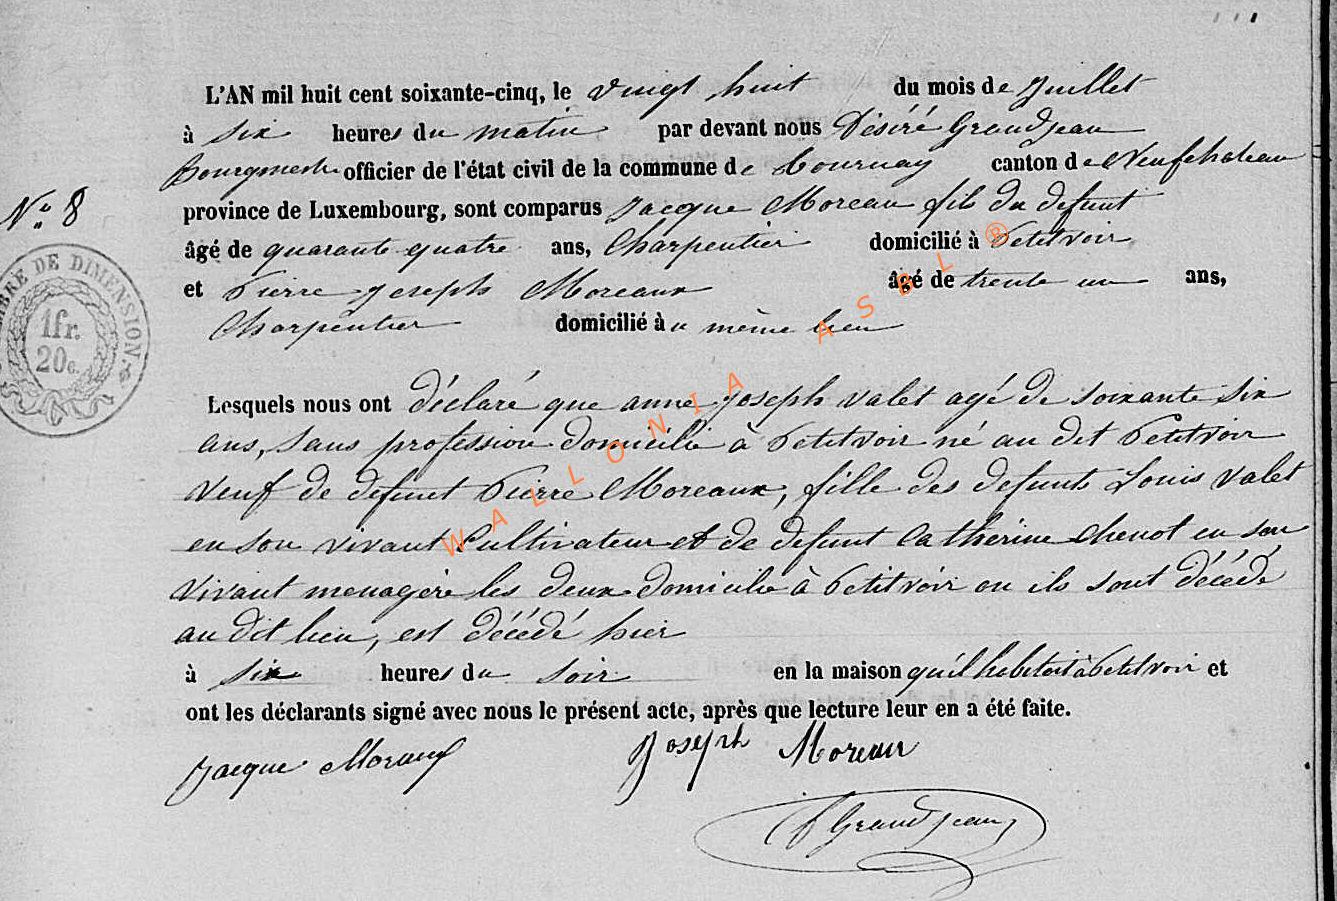 L'AN mil huit cent soixante-cinq, le vingt huit du mois de Juillet
à six heures du matin par devant nous Désiré Grandjean
Bourgmestre officier de l'état civil de la commune de Tournay canton de Neufchateau
N° 8
province de Luxembourg, sont comparus Jacque Moreau fils du defunt
âgé de quarante quatre ans, Charpentier domicilié à Petitvoir
et Pierre Joseph Moreaux âgé de trente un ans,
Charpentier domicilié au même lieu
TIMBRE DE DIMENSION
1fr.
20c.
WALLONIA ASBL ®
Lesquels nous ont déclaré que anne Joseph Valet agé de soixante six
ans, sans profession domicilié à Petitvoir né au dit Petitvoir
Veuf de defunt Pierre Moreaux, fille des defunts Louis Valet
en son vivant Cultivateur et de defunt Catherine Chenot en son
vivant menagère les deux domicilie à Petitvoir ou ils sont décédé
au dit lieu, est décédé hier
à six heures du soir en la maison qu'il habitait à Petitvoir et
ont les déclarants signé avec nous le présent acte, après que lecture leur en a été faite.
Jacque Joseph Moreau
Grandjean